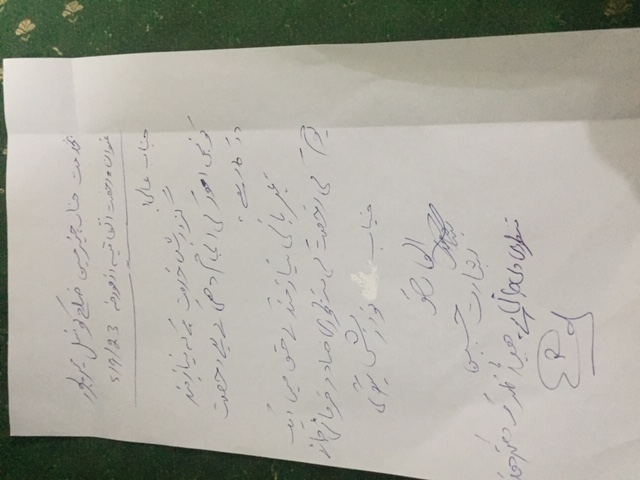 بخدمت جناب چیئرمین ضلع کونسل میرپور
عنوان: رخصت اتفاقیہ از مورخہ 5/9/23
جناب عالی!
گزارش خدمت ہے کہ نیازمند
کو نجی امور کی انجام دہی کے لیے رخصت
درکار ہے۔
مہربانی نیازمند کے حق میں ایک
یوم کی رخصت کی منظوری صادر فرمائی جائے
جناب نوازش ہوگی
العارض
بشارت حسین
منظوری دی جاتی ہے۔ ہیڈ کلرک